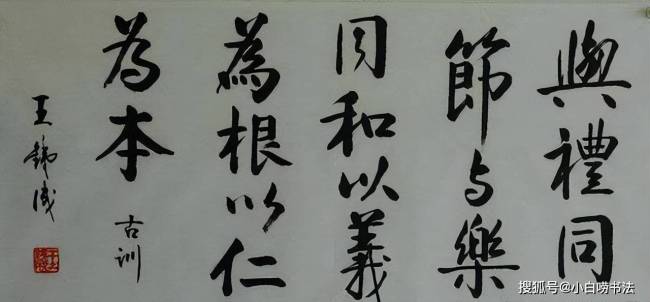 與禮同
節与樂
同和以義
為根以仁
为本
古训
王
搜狐号@小白唠书法